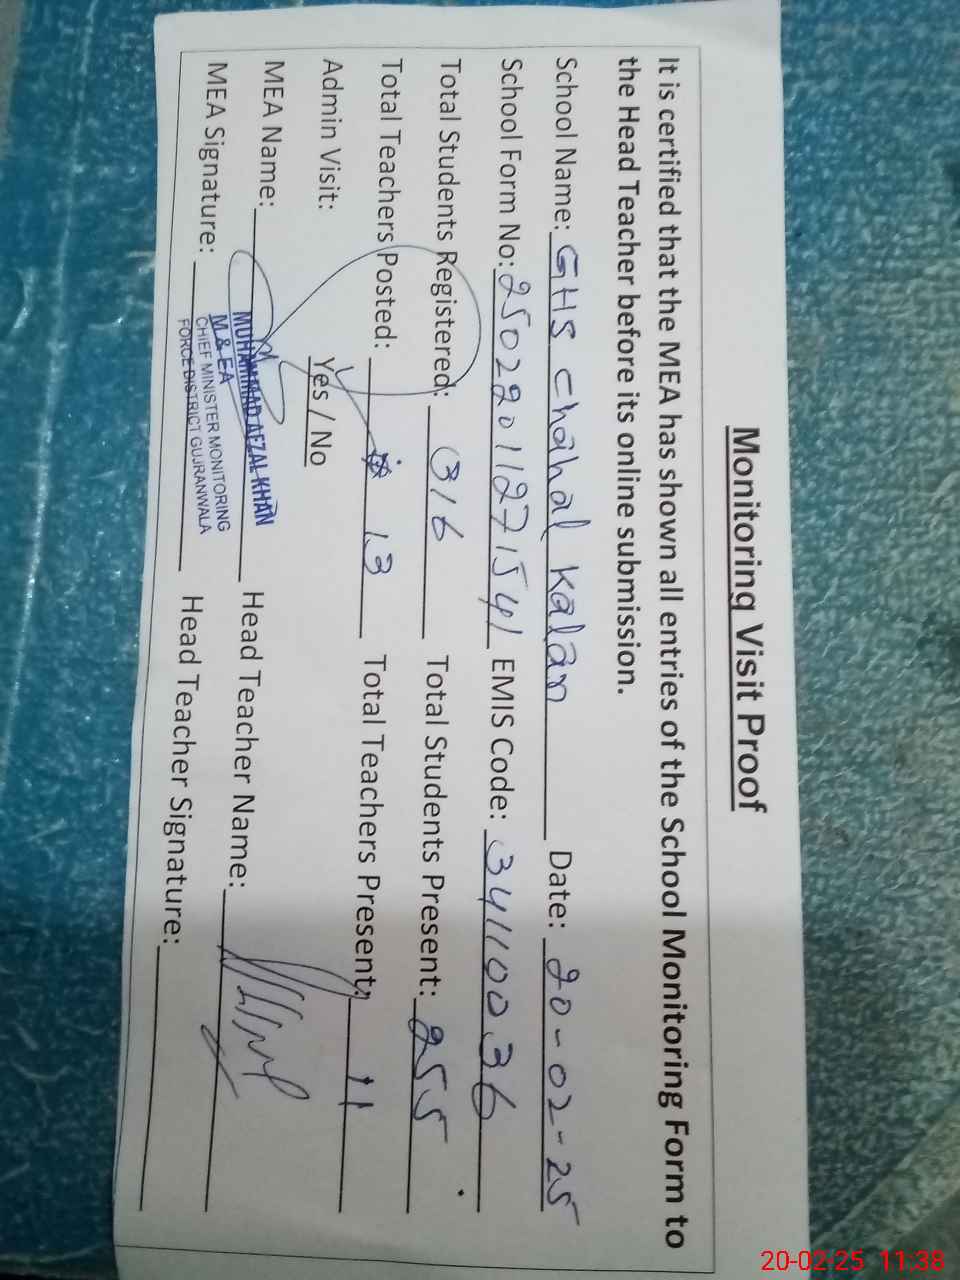 Monitoring Visit Proof
It is certified that the MEA has shown all entries of the School Monitoring Form to
the Head Teacher before its online submission.
School Name: GHS Chahal Kalan Date: 20-02-25
School Form No: 25022011271541 EMIS Code: 34110036
Total Students Registered: 316 Total Students Present: 255
Total Teachers Posted: 13 Total Teachers Present: 11
Admin Visit: Yes / No
MEA Name: MUHAMMAD AFZAL KHAN Head Teacher Name:
M & EA
CHIEF MINISTER MONITORING
FORCE DISTRICT GUJRANWALA
MEA Signature: Head Teacher Signature:
20-02-25 11:38